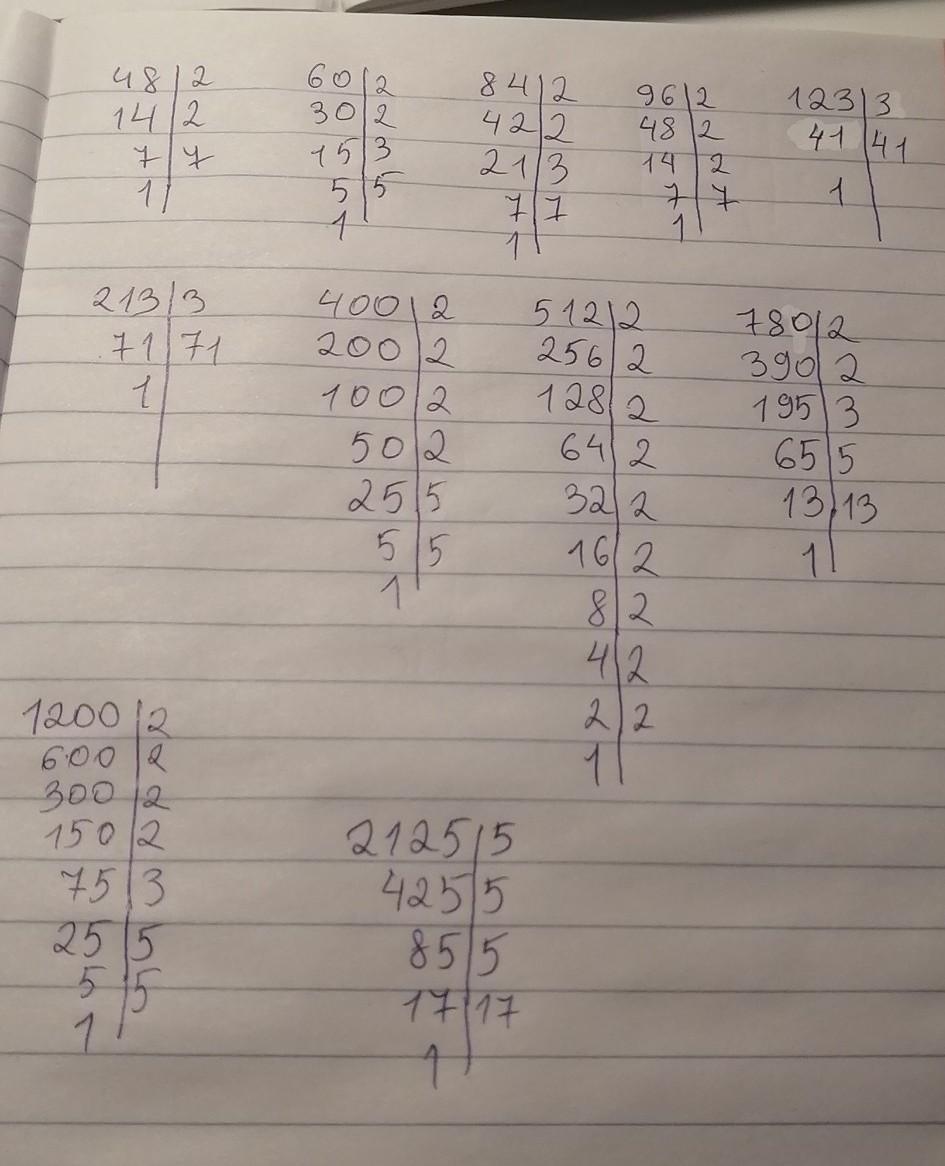 48 | 2
14 | 2
7 | 7
1 |
60 | 2
30 | 2
15 | 3
5 | 5
1 |
84 | 2
42 | 2
21 | 3
7 | 7
1 |
96 | 2
48 | 2
14 | 2
7 | 7
1 |
123 | 3
41 | 41
1 |
213 | 3
71 | 71
1 |
400 | 2
200 | 2
100 | 2
50 | 2
25 | 5
5 | 5
1 |
512 | 2
256 | 2
128 | 2
64 | 2
32 | 2
16 | 2
8 | 2
4 | 2
2 | 2
1 |
780 | 2
390 | 2
195 | 3
65 | 5
13 | 13
1 |
1200 | 2
600 | 2
300 | 2
150 | 2
75 | 3
25 | 5
5 | 5
1 |
2125 | 5
425 | 5
85 | 5
17 | 17
1 |